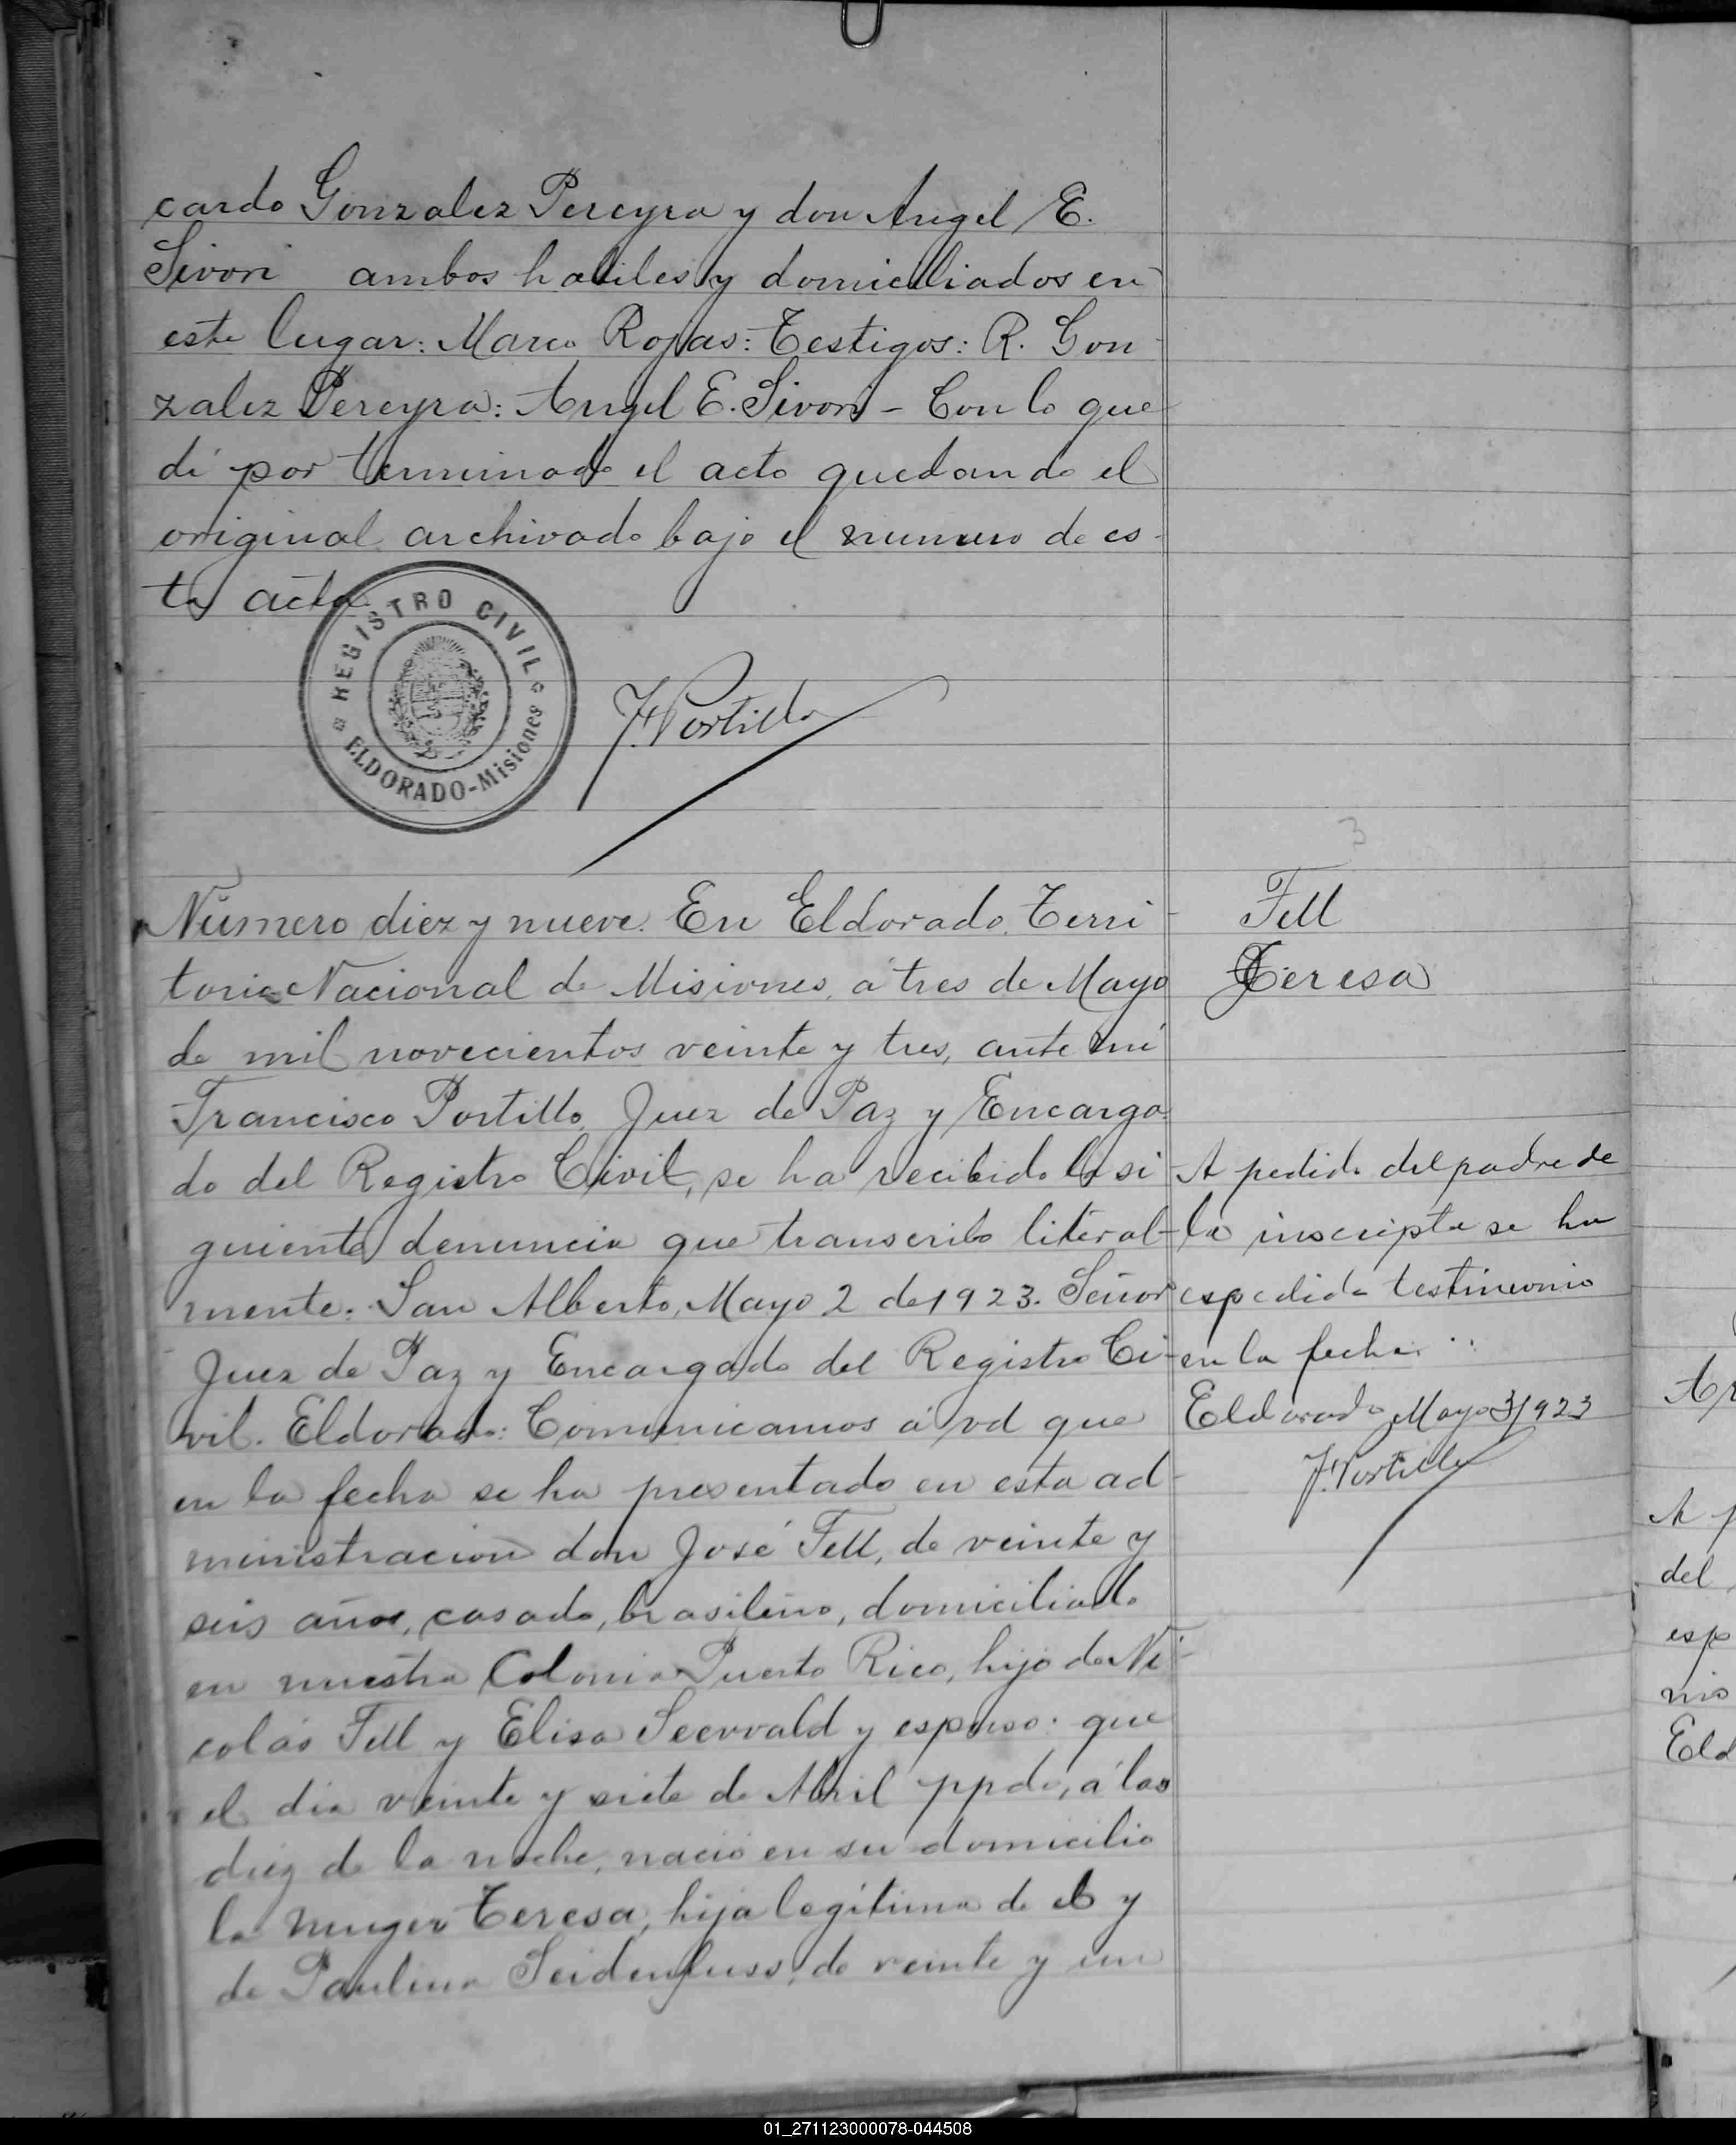 cardo Gonzalez Pereyra y don Angel E.
Sivori ambos habiles y domiciliados en
este lugar: Marco Rojas: Testigos: R. Gon
zalez Pereyra: Angel E. Sivori - Con lo que
dí por terminado el acto quedando el
original archivado bajo el numero de es-
ta acta
REGISTRO CIVIL
ELDORADO-Misiones
F. Portillo
3
Número diez y nueve. En Eldorado, Terri-
torio Nacional de Misiones, á tres de Mayo
de mil novecientos veinte y tres, ante mí
Francisco Portillo, Juez de Paz y Encarga-
do del Registro Civil, se ha recibido la si-
guiente denuncia que transcribo literal-
mente: San Alberto, Mayo 2 de 1923. Señor
Juez de Paz y Encargado del Registro Ci-
vil. Eldorado: Comunicamos á vd que
en la fecha se ha presentado en esta ad-
ministracion don José Fell, de veinte y
seis años, casado, brasileño, domiciliado
en nuestra Colonia Puerto Rico, hijo de Ni-
colás Fell y Elisa Seewald y espuso: que
el dia veinte y siete de Abril ppdo, á las
diez de la noche, nació en su domicilio
la muger Teresa, hija legítima de el y
de Paulina Seidenfuss, de veinte y un
Fell
Teresa
A pedido del padre de
la inscripta se ha
espedido testimonio
en la fecha
Eldorado Mayo 3/923
F. Portillo
A p
del
esp
nio
Eld